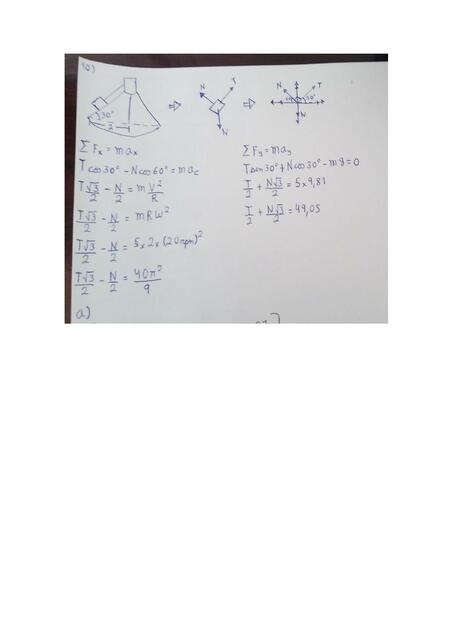 10)
30°
2
⇒
N
T
N
⇒
N
T
30°
N
Σ Fx = m ax
T cos 30° − N cos 60° = m ac
T √3/2 − N/2 = m V²/R
T√3/2 − N/2 = mRω²
T√3/2 − N/2 = 5 x 2 x (20 rpm)²
T√3/2 − N/2 = 40π²/9
a)
Σ Fy = m ay
T sen 30° + N cos 30° − m g = 0
T/2 + N√3/2 = 5 x 9,81
T/2 + N√3/2 = 49,05